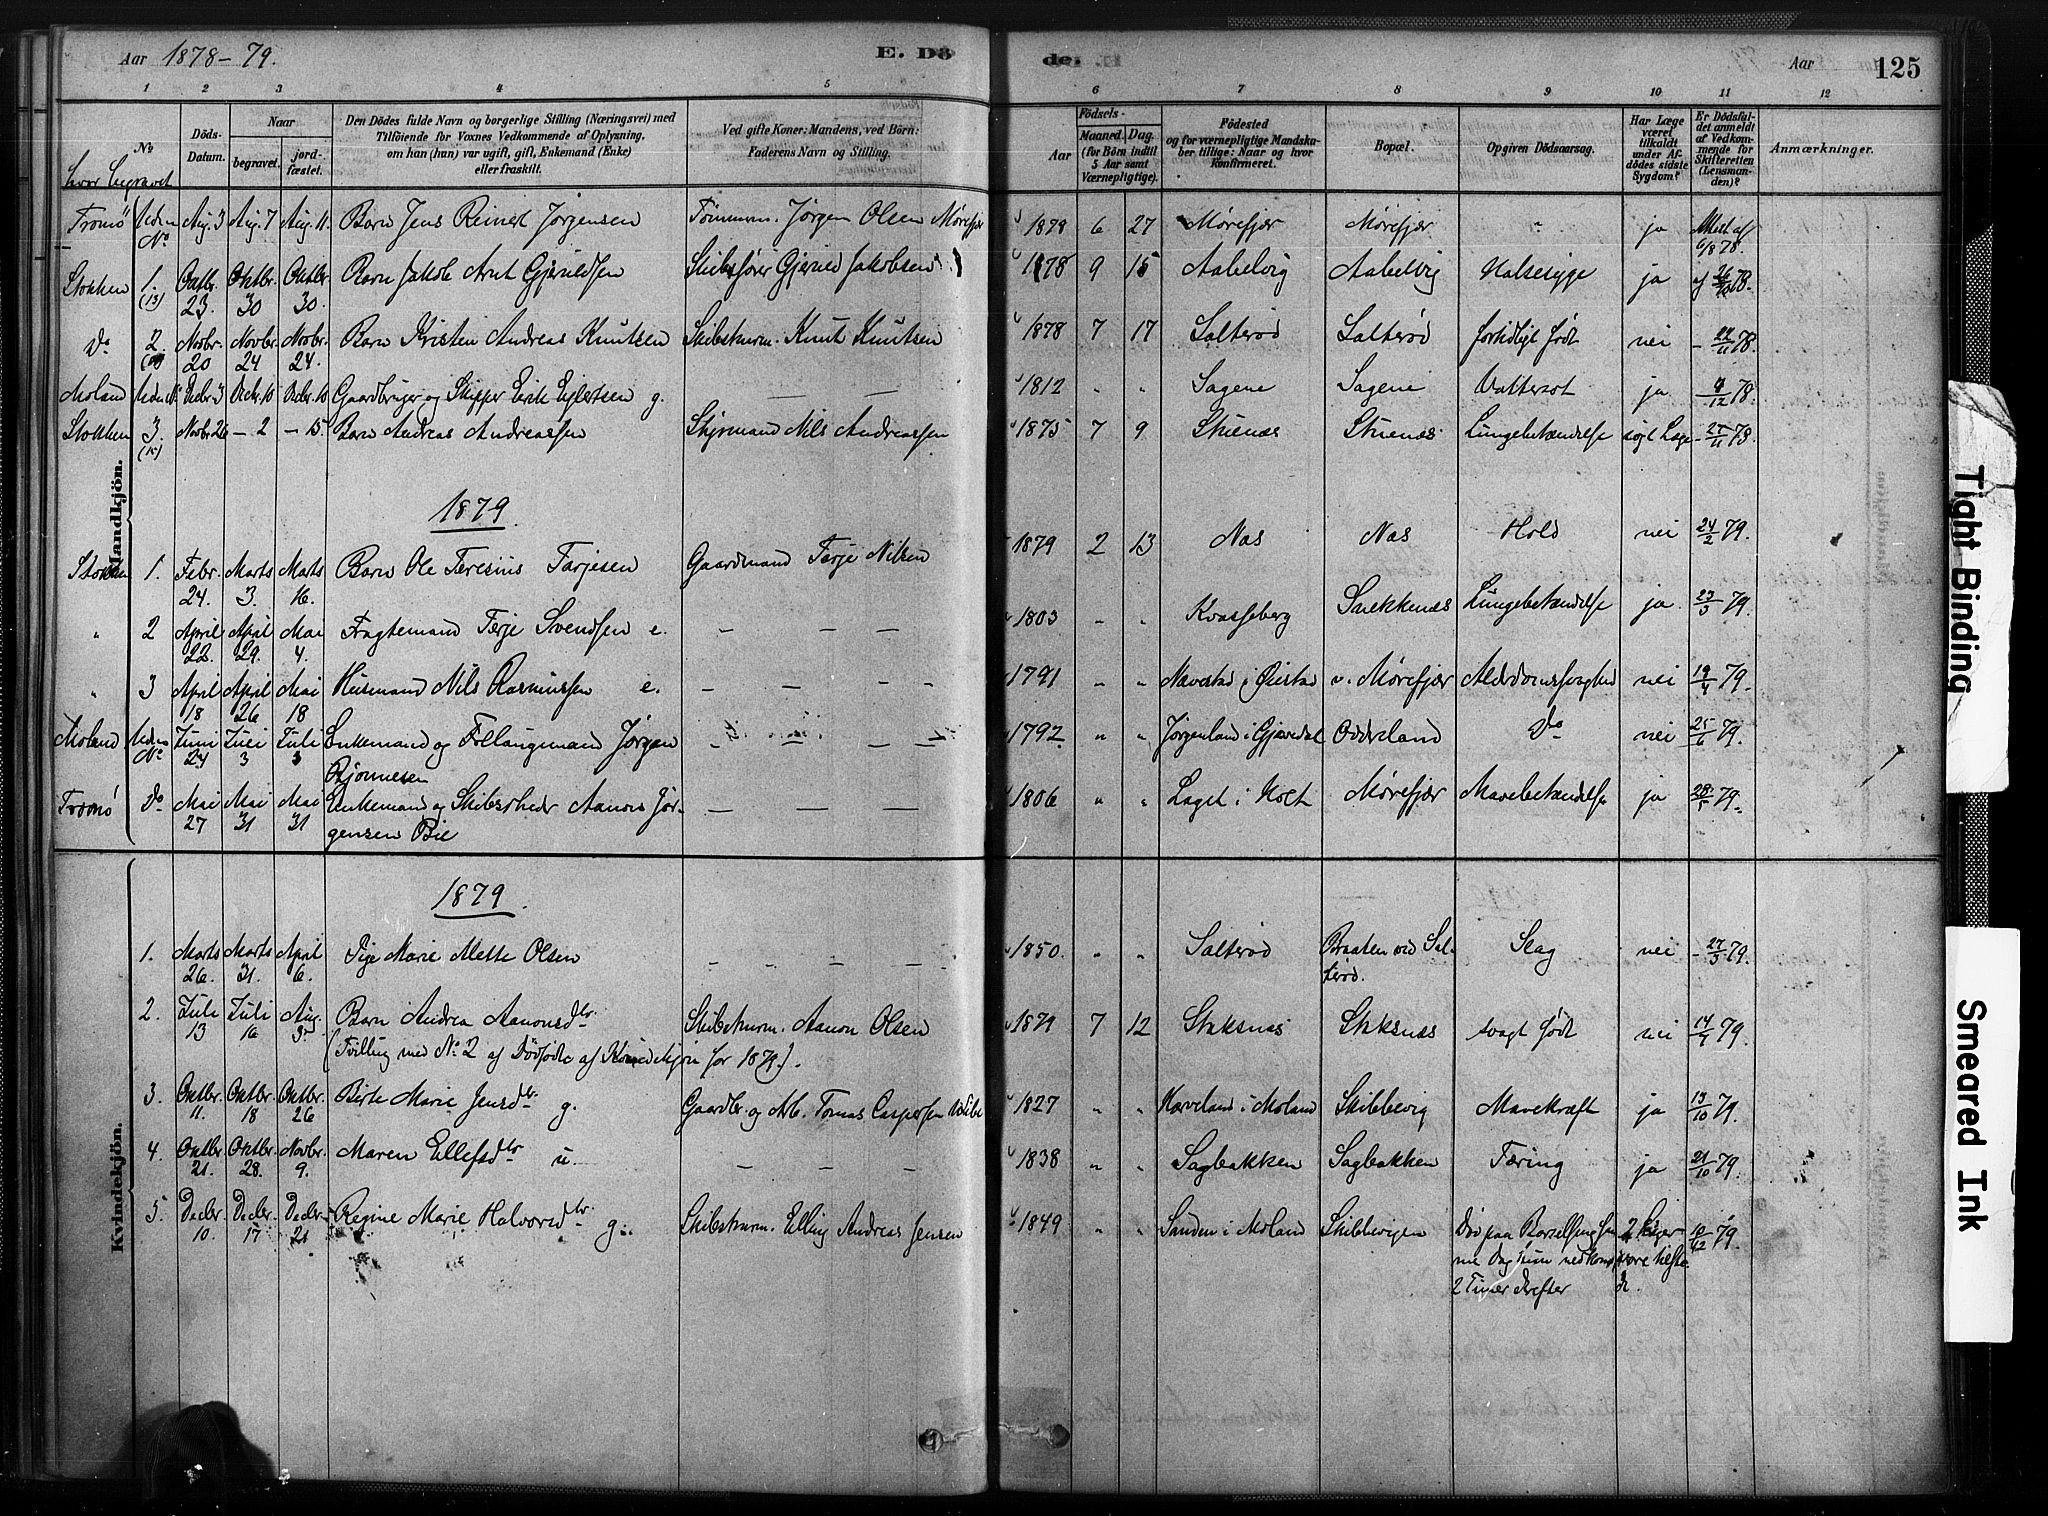 Aar 1878-79. E. Dö
de. Aar 125
1 2 3 4 5 6 7 8 9 10 11 12
hvor begravet No Döds-Datum. Naar begravet. jordfæstet. Den Dödes fulde Navn og borgerlige Stilling (Næringsvei) med Tilföiende for Voxnes Vedkommende af Oplysning, om han (hun) var ugift, gift, Enkemand (Enke) eller fraskilt. Ved gifte Koner: Mandens, ved Börn: Faderens Navn og Stilling. Födsels- Aar Maaned. Dag. (for Börn indtil 5 Aar samt Værnepligtige). Födested og for værnepligtige Mandskaber tillige: Naar og hvor Konfirmeret. Bopæl. Opgiven Dödsaarsag. Har Læge været tilkaldt under Afdödes sidste Sygdom? Er Dödsfaldet anmeldt af Vedkommende for Skifteretten (Lensmanden)? Anmærkninger.
Mandkjön.
Tromö Uden No. Aug. 3 Aug. 7 Aug. 11. Barn Jens Reinert Jörgensen Tömmerm. Jörgen Olsen Mörefjær 1878 6 27 Mörefjær Mörefjær " ja 6/8 78.
Stokken 1. (13) Oktbr. 23. Oktbr. 30 Oktbr. 30. Barn Jakob Arnt Gjeruldsen Skibsförer Gjerud Jakobsen 1878 9 15 Aabelvig Aabelvig Halsesyge ja 78.
Do 2. Novbr. 20 Novbr. 24 Novbr. 24. Barn Kristen Andreas Knutsen Skibstmrm. Knut Knutsen 1878 7 17 Salteröd Salteröd fortidligt födt nei - 22/11 78.
Moland Uden No Decbr. 3 Decbr. 10 Decbr. 10 Gaardbruger og Skipper Erik Eilertsen g. — — 1812 " " Sagene Sagene Vattersot ja 78.
Stokken 3. Novbr. 26 - 2 - 15. Barn Andreas Andreassen Styrmand Nils Andreassen 1875 7 9 Stuenæs Stuenæs Lungebetændelse sögt Læge - 27/11 78
1879
Stokken 1. Febr. 24. Marts 3. Marts 16. Barn Ole Teresius Tarjesen Gaardmand Tarje Nilsen 1879 2 13 Næs Næs Hold nei 24/2 79.
" 2 April 22. April 29. Mai 4. Fragtemand Terje Svendsen e. — — — 1803 " " Kvasseberg Snekkenæs Lungebetændelse ja 79.
" 3 April 18 April 26 Mai 18 Husmand Nils Rasmussen e. — — — 1791 " " Nævestad i Öiestad v. Mörefjær Alderdomssvaghed nei 19/4 79.
Moland Uden No. Juni 24 Juli 3 Juli 3 Enkemand og Jörgen
Bjönnesen — — — 1792. " " Jörgenland i Gjerrestad Odderland Do nei 25/6 79.
Tromö Do Mai 27 Mai 31 Mai 31 Enkemand og Skibsrheder Aanon Jör-
gensen Bie — — — 1806 " " Laget i Holt Mörefjær Mavebetændelse ja 28/5 79.
Kvindekjön.
1879.
1. Marts 26. Marts 31. April 6. Pige Marie Mette Olsen — — — 1850. " " Salteröd Braaten ved Sal-
teröd. Slag nei - 27/3 79.
2. Juli 13 Juli 16 Aug. 3. Barn Andrea Aanonsdtr. Skibstmrm. Aanon Olsen 1879 7 12 Staksnæs Staksnæs svagt födt nei 14/7 79.
(Tvilling med No. 2 af Dödfödte af Kvindekjön for 1879).
3. Oktbr. 11. Oktbr. 18 Oktbr. 26 Birte Marie Jensdtr. g. Gaardbr. og Tomas Caspersen 1827 " " Haveland i Moland Skibbevig Mavekræft ja 13/10 79.
4. Oktbr. 21. Oktbr. 28. Novbr. 9. Maren Ellefsdtr. u. — — 1838 " " Sagbakken Sagbakken Tæring ja 21/10 79.
5. Decbr. 10. Decbr. 17 Decbr. 21 Regine Marie Halvorsdtr. g. Skibstmrm. Elling Andreas Jensen 1849 " " Sanden i Moland Skibbevigen Död paa Barselseng
Dag hun nedkom
2 Timer derefter 2 Læger
vare tilste-
de. 10/12 79.
Tight Binding
Smeared Ink